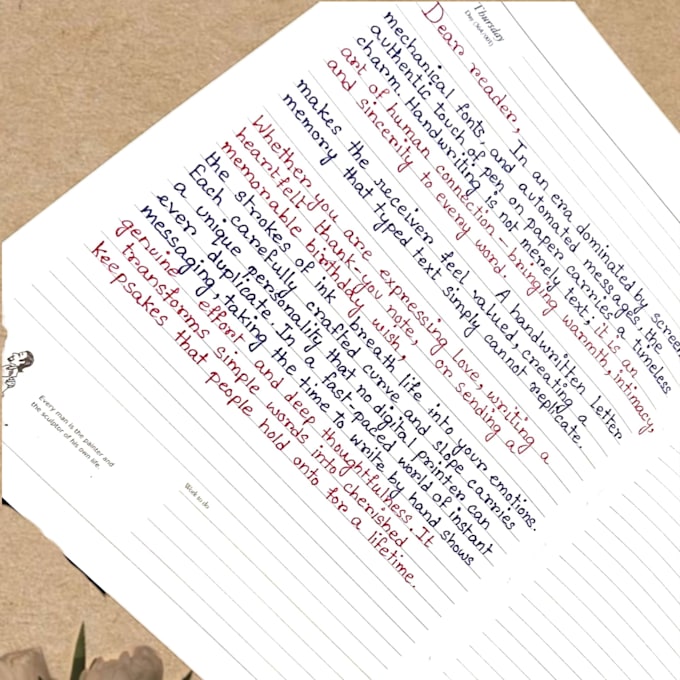 Thursday
Dear reader,
In an era dominated by screen
mechanical fonts, and automated messages, the
authentic touch of pen on paper carries a timeless
charm. Handwriting is not merely text; it is an
art of human connection – bringing warmth, intimacy,
and sincerity to every word.
A handwritten letter
makes the receiver feel valued, creating a
memory that typed text simply cannot replicate.
Whether you are expressing love, writing a
heartfelt thank-you note, or sending a
memorable birthday wish,
the strokes of ink breath life into your emotions.
Each carefully crafted curve and slope carries
a unique personality that no digital printer can
ever duplicate. In a fast-paced world of instant
messaging, taking the time to write by hand shows
genuine effort and deep thoughtfulness. It
transforms simple words into cherished
keepsakes that people hold onto for a lifetime.
Every man is the painter and
the sculptor of his own life.
Work to do